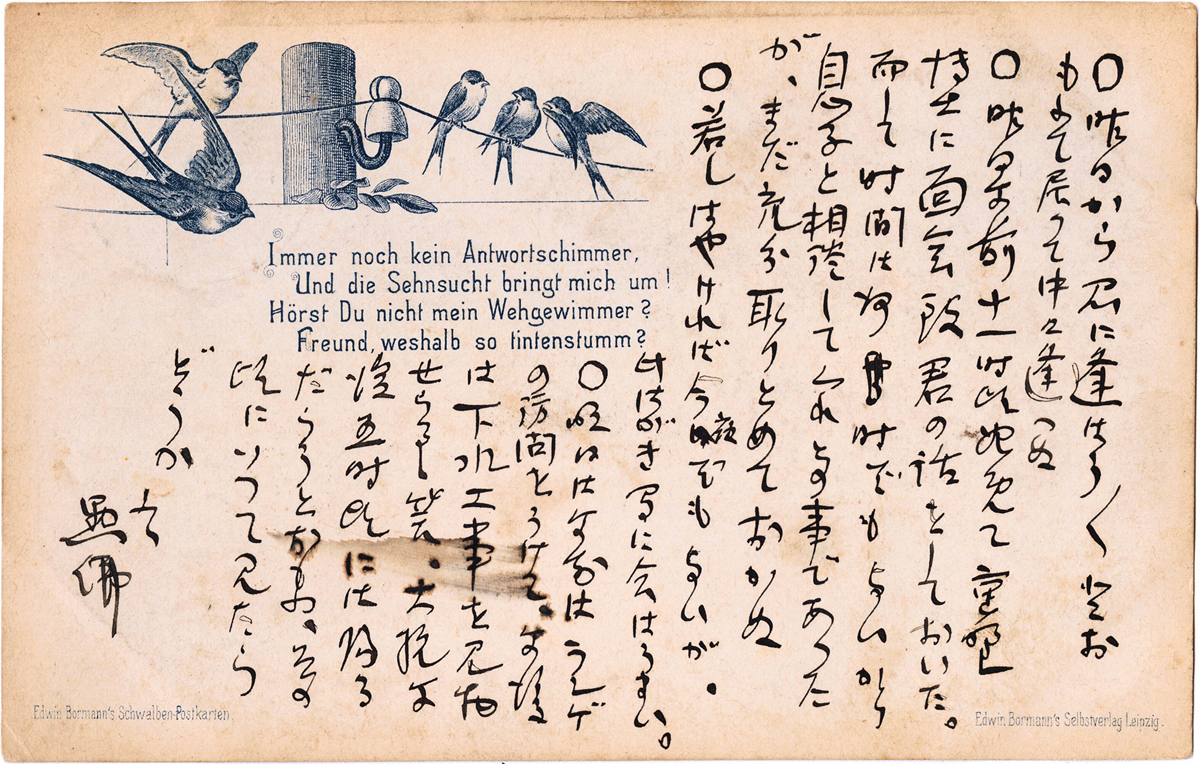 Immer noch kein Antwortschimmer,
Und die Sehnsucht bringt mich um!
Hörst Du nicht mein Wehgewimmer?
Freund, weshalb so tintenstumm?
〇昨日から君に逢はう〱とお
もふて居つて中々逢へぬ
〇昨日午前十一時頃始めて重野
博士に面会致君の話をしておいた。
而して時間は何時でもよいから
息子と相談してくれとの事であつた
が、まだ充分取りとめておかぬ
〇若しはやければ今夜でもよいが。
此はがき間に合はうまい。
〇明日は午前は
の訪問をうけて、午後
は下水工事を見物
せらるゝ筈。大抵午
後五時頃には帰る
だらうとおもふ、その
頃にいつて見たら
どうか
Edwin Bormann's Schwalben-Postkarten.
Edwin Bormann's Selbstverlag Leipzig.